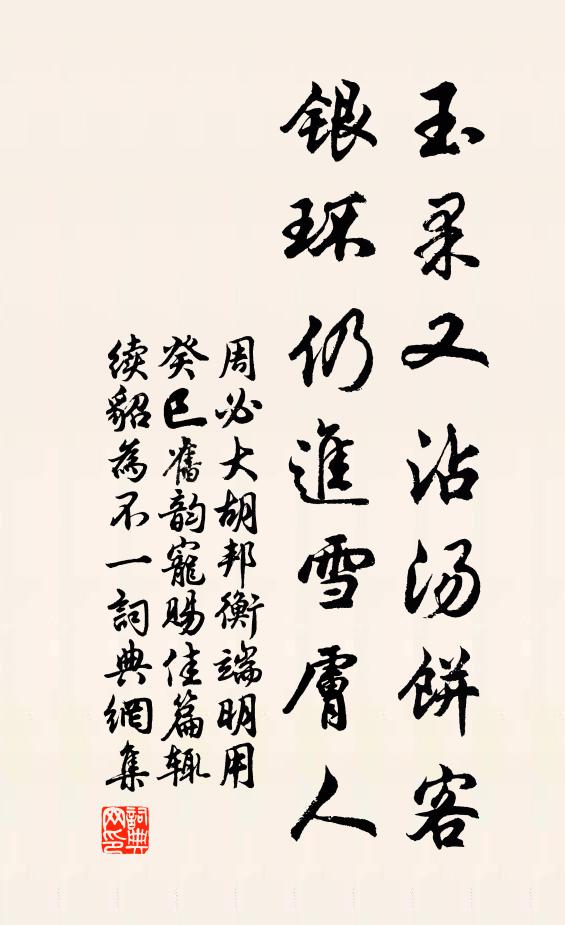 玉果又沾汤餅客
銀环仍進雪膚人
周必大胡邦衡端明用
癸巳舊韵寵賜佳篇辄
续貂為不一詞典網集
詞典网印